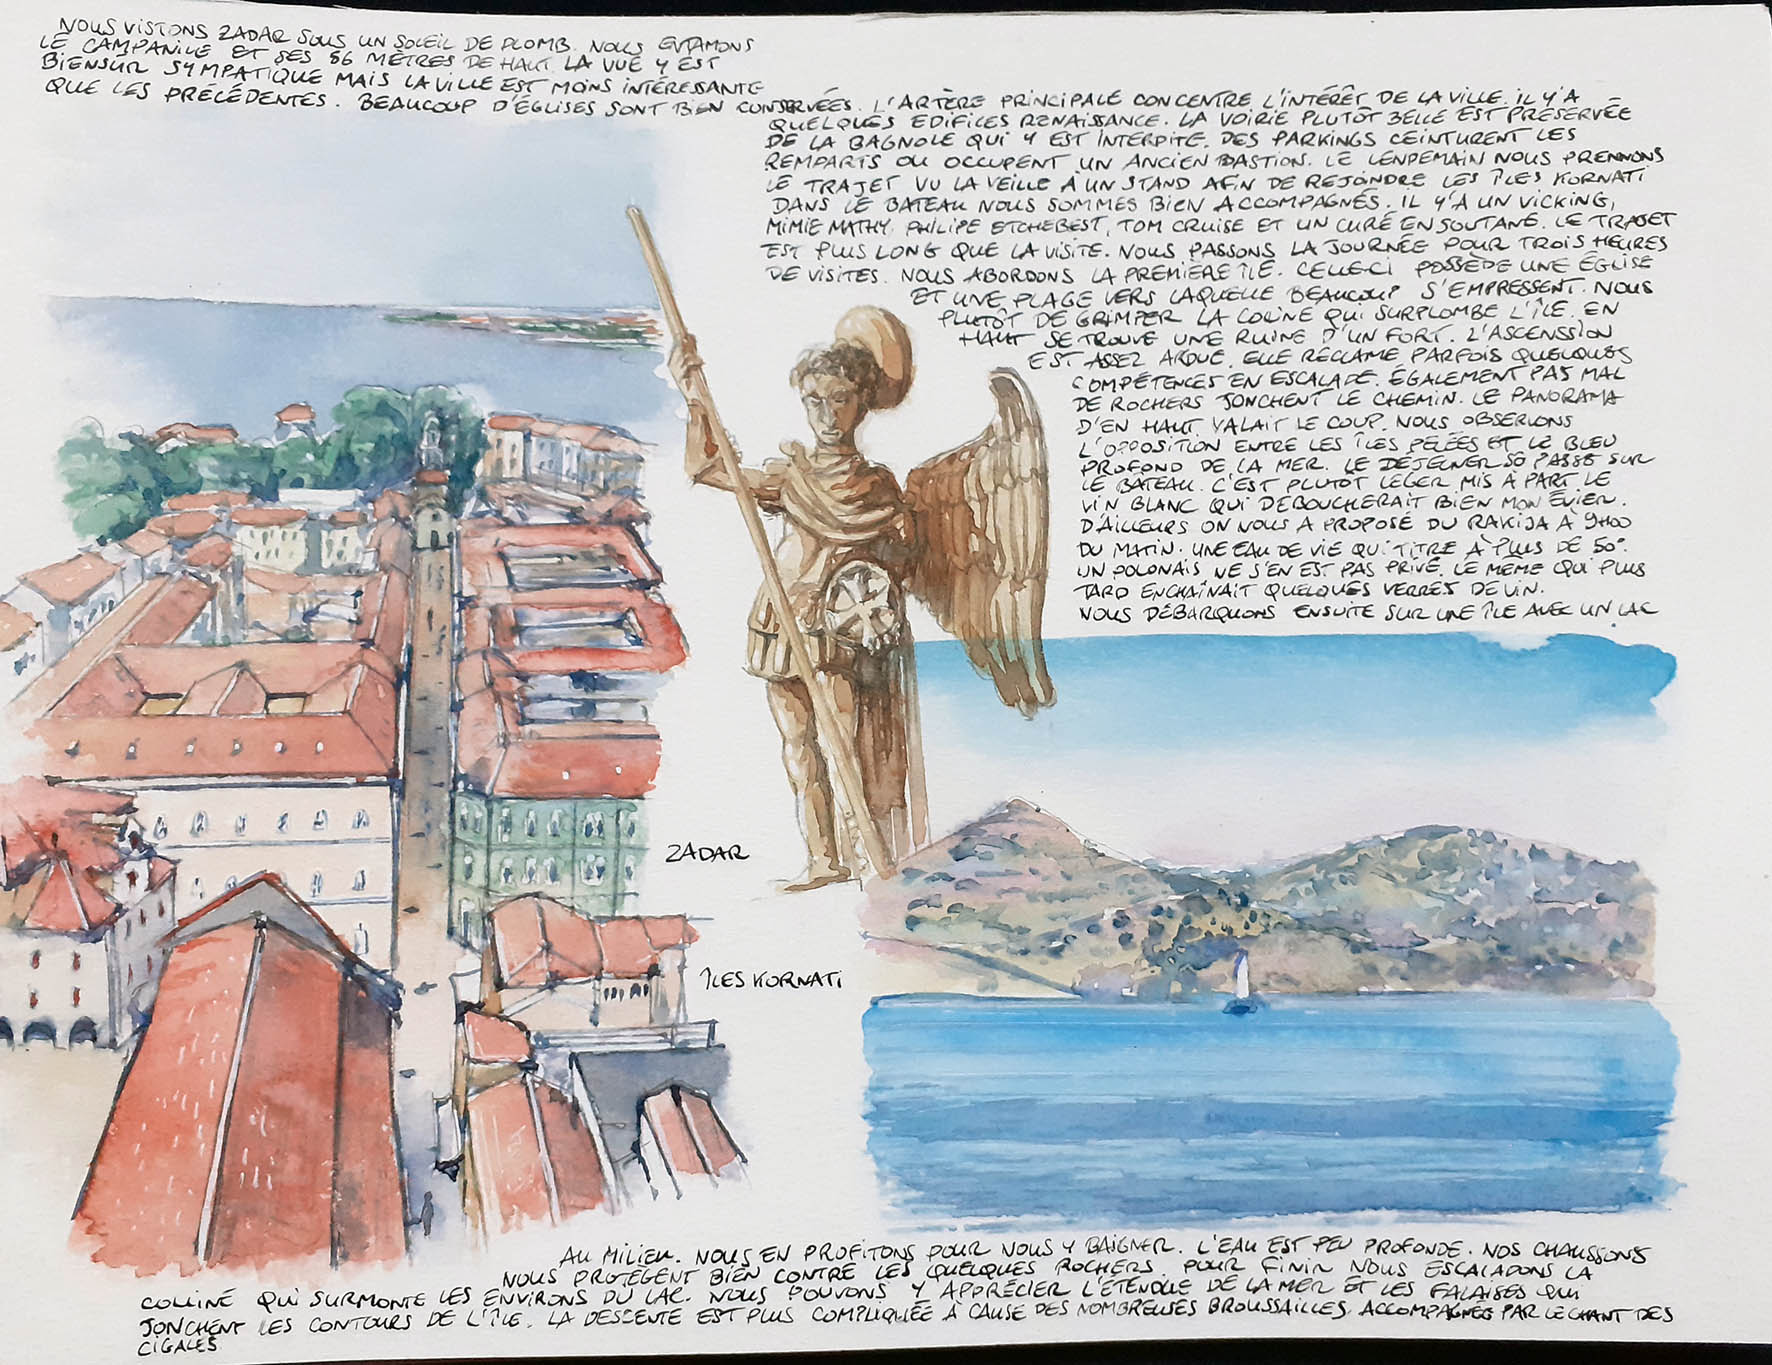 NOUS VISTONS ZADAR SOUS UN SOLEIL DE PLOMB. NOUS ENTAMONS
LE CAMPANILE ET SES 56 MÈTRES DE HAUT. LA VUE Y EST
BIENSÛR SYMPATIQUE MAIS LA VILLE EST MOINS INTÉRESSANTE
QUE LES PRÉCÉDENTES. BEAUCOUP D'ÉGLISES SONT BIEN CONSERVÉES. L'ARTÈRE PRINCIPALE CONCENTRE L'INTÉRÊT DE LA VILLE. IL Y'A
QUELQUES EDIFICES RENAISSANCE. LA VOIRIE PLUTÔT BELLE EST PRÉSERVÉE
DE LA BAGNOLE QUI Y EST INTERDITE. DES PARKINGS CEINTURENT LES
REMPARTS OU OCCUPENT UN ANCIEN BASTION. LE LENDEMAIN NOUS PRENNONS
LE TRAJET VU LA VEILLE À UN STAND AFIN DE REJOINDRE LES ÎLES KORNATI
DANS LE BATEAU NOUS SOMMES BIEN ACCOMPAGNÉS. IL Y'A UN VICKING,
MIMIE MATHY, PHILIPE ETCHEBEST, TOM CRUISE ET UN CURÉ EN SOUTANE. LE TRAJET
EST PLUS LONG QUE LA VISITE. NOUS PASSONS LA JOURNÉE POUR TROIS HEURES
DE VISITES. NOUS ABORDONS LA PREMIÈRE ÎLE. CELLE-CI POSSÈDE UNE ÉGLISE
ET UNE PLAGE VERS LAQUELLE BEAUCOUP S'EMPRESSENT. NOUS
PLUTÔT DE GRIMPER LA COLINE QUI SURPLOMBE L'ÎLE. EN
HAUT SE TROUVE UNE RUINE D'UN FORT. L'ASCENSSION
EST ASSEZ ARDUE. ELLE RÉCLAME PARFOIS QUELQUES
COMPÉTENCES EN ESCALADE. ÉGALEMENT PAS MAL
DE ROCHERS JONCHENT LE CHEMIN. LE PANORAMA
D'EN HAUT VALAIT LE COUP. NOUS OBSERVONS
L'OPPOSITION ENTRE LES ÎLES PELÉES ET LE BLEU
PROFOND DE LA MER. LE DÉJEUNER SE PASSE SUR
LE BATEAU. C'EST PLUTÔT LÉGER MIS À PART LE
VIN BLANC QUI DÉBOUCHERAIT BIEN MON ÉVIER.
D'AILLEURS ON NOUS A PROPOSÉ DU RAKIJA À 9H00
DU MATIN. UNE EAU DE VIE QUI TITRE À PLUS DE 50°.
UN POLONAIS NE S'EN EST PAS PRIVÉ. LE MÊME QUI PLUS
TARD ENCHAÎNAIT QUELQUES VERRES DE VIN.
NOUS DÉBARQUONS ENSUITE SUR UNE ÎLE AVEC UN LAC
ZADAR
ÎLES KORNATI
AU MILIEU. NOUS EN PROFITONS POUR NOUS Y BAIGNER. L'EAU EST PEU PROFONDE. NOS CHAUSSONS
NOUS PROTÈGENT BIEN CONTRE LES QUELQUES ROCHERS. POUR FINIR NOUS ESCALADONS LA
COLLINE QUI SURMONTE LES ENVIRONS DU LAC. NOUS POUVONS Y APPRÉCIER L'ÉTENDUE DE LA MER ET LES FALAISES QUI
JONCHENT LES CONTOURS DE L'ÎLE. LA DESCENTE EST PLUS COMPLIQUÉE À CAUSE DES NOMBREUSES BROUSSAILLES. ACCOMPAGNÉS PAR LE CHANT DES
CIGALES.